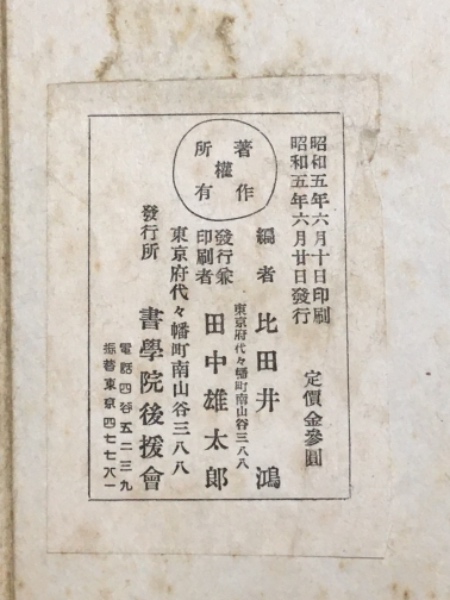 昭和五年六月十日印刷
昭和五年六月廿日發行
定價金參圓
著作
權
所有
編者 比田井 鴻
東京府代々幡町南山谷三八八
發行兼
印刷者
田中雄太郎
東京府代々幡町南山谷三八八
發行所 書學院後援會
電話四谷五二三九
振替東京四七七八一